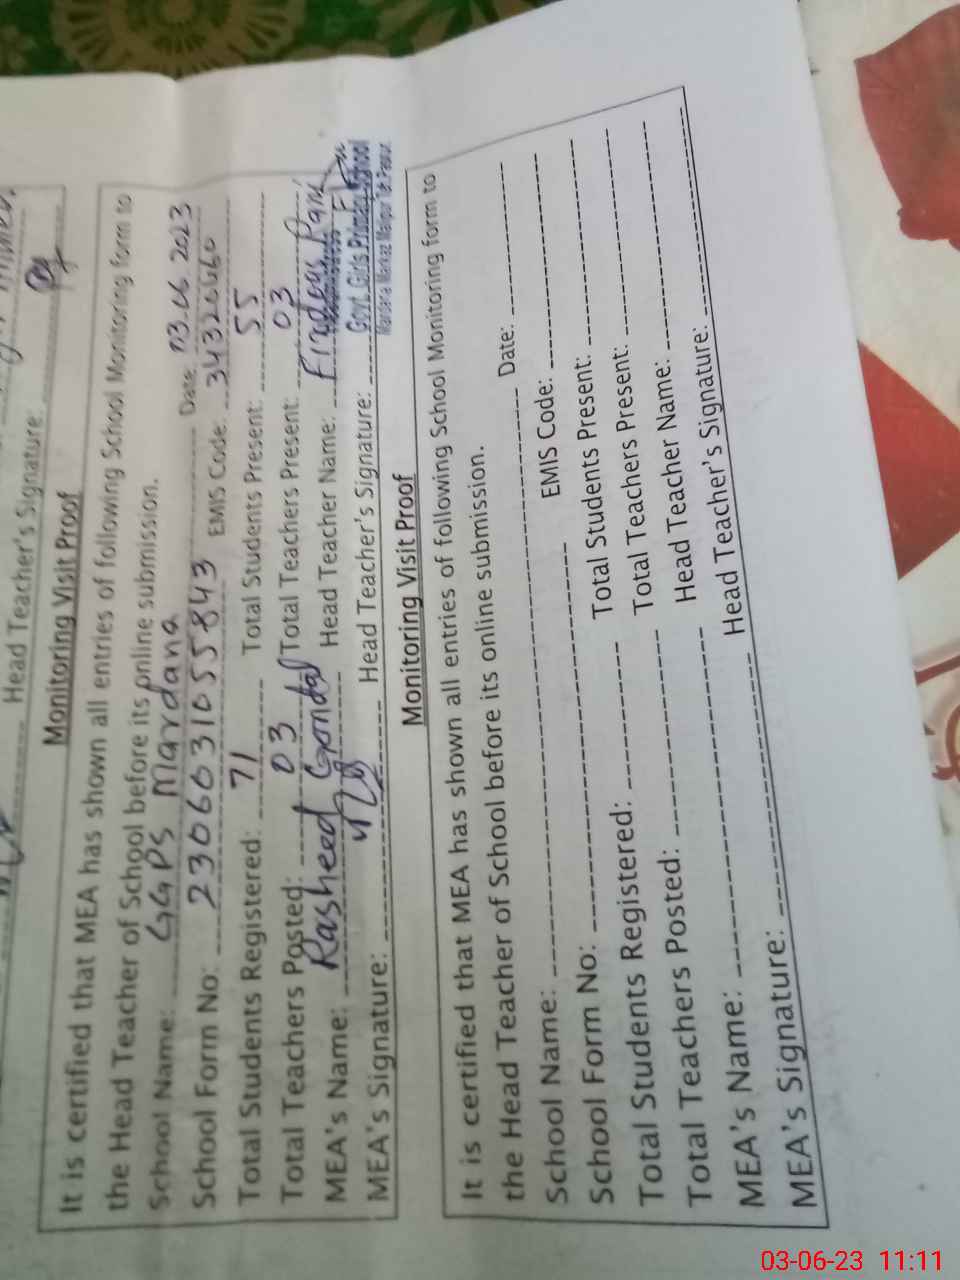 Head Teacher's Signature:
Monitoring Visit Proof
It is certified that MEA has shown all entries of following School Monitoring form to
the Head Teacher of School before its online submission.
School Name: GGPS Mardana Date: 03.06.2023
School Form No: 230603105 5843 EMIS Code: 34320460
Total Students Registered: 71 Total Students Present: 55
Total Teachers Posted: 03 Total Teachers Present: 03
MEA's Name: Rasheed Gondal Head Teacher Name: Firdous Rani
MEA's Signature: Head Teacher's Signature:
Govt. Girls Primary School
Mardana Markaz
Monitoring Visit Proof
It is certified that MEA has shown all entries of following School Monitoring form to
the Head Teacher of School before its online submission.
School Name: Date:
School Form No: EMIS Code:
Total Students Registered: Total Students Present:
Total Teachers Posted: Total Teachers Present:
MEA's Name: Head Teacher Name:
MEA's Signature: Head Teacher's Signature:
03-06-23 11:11